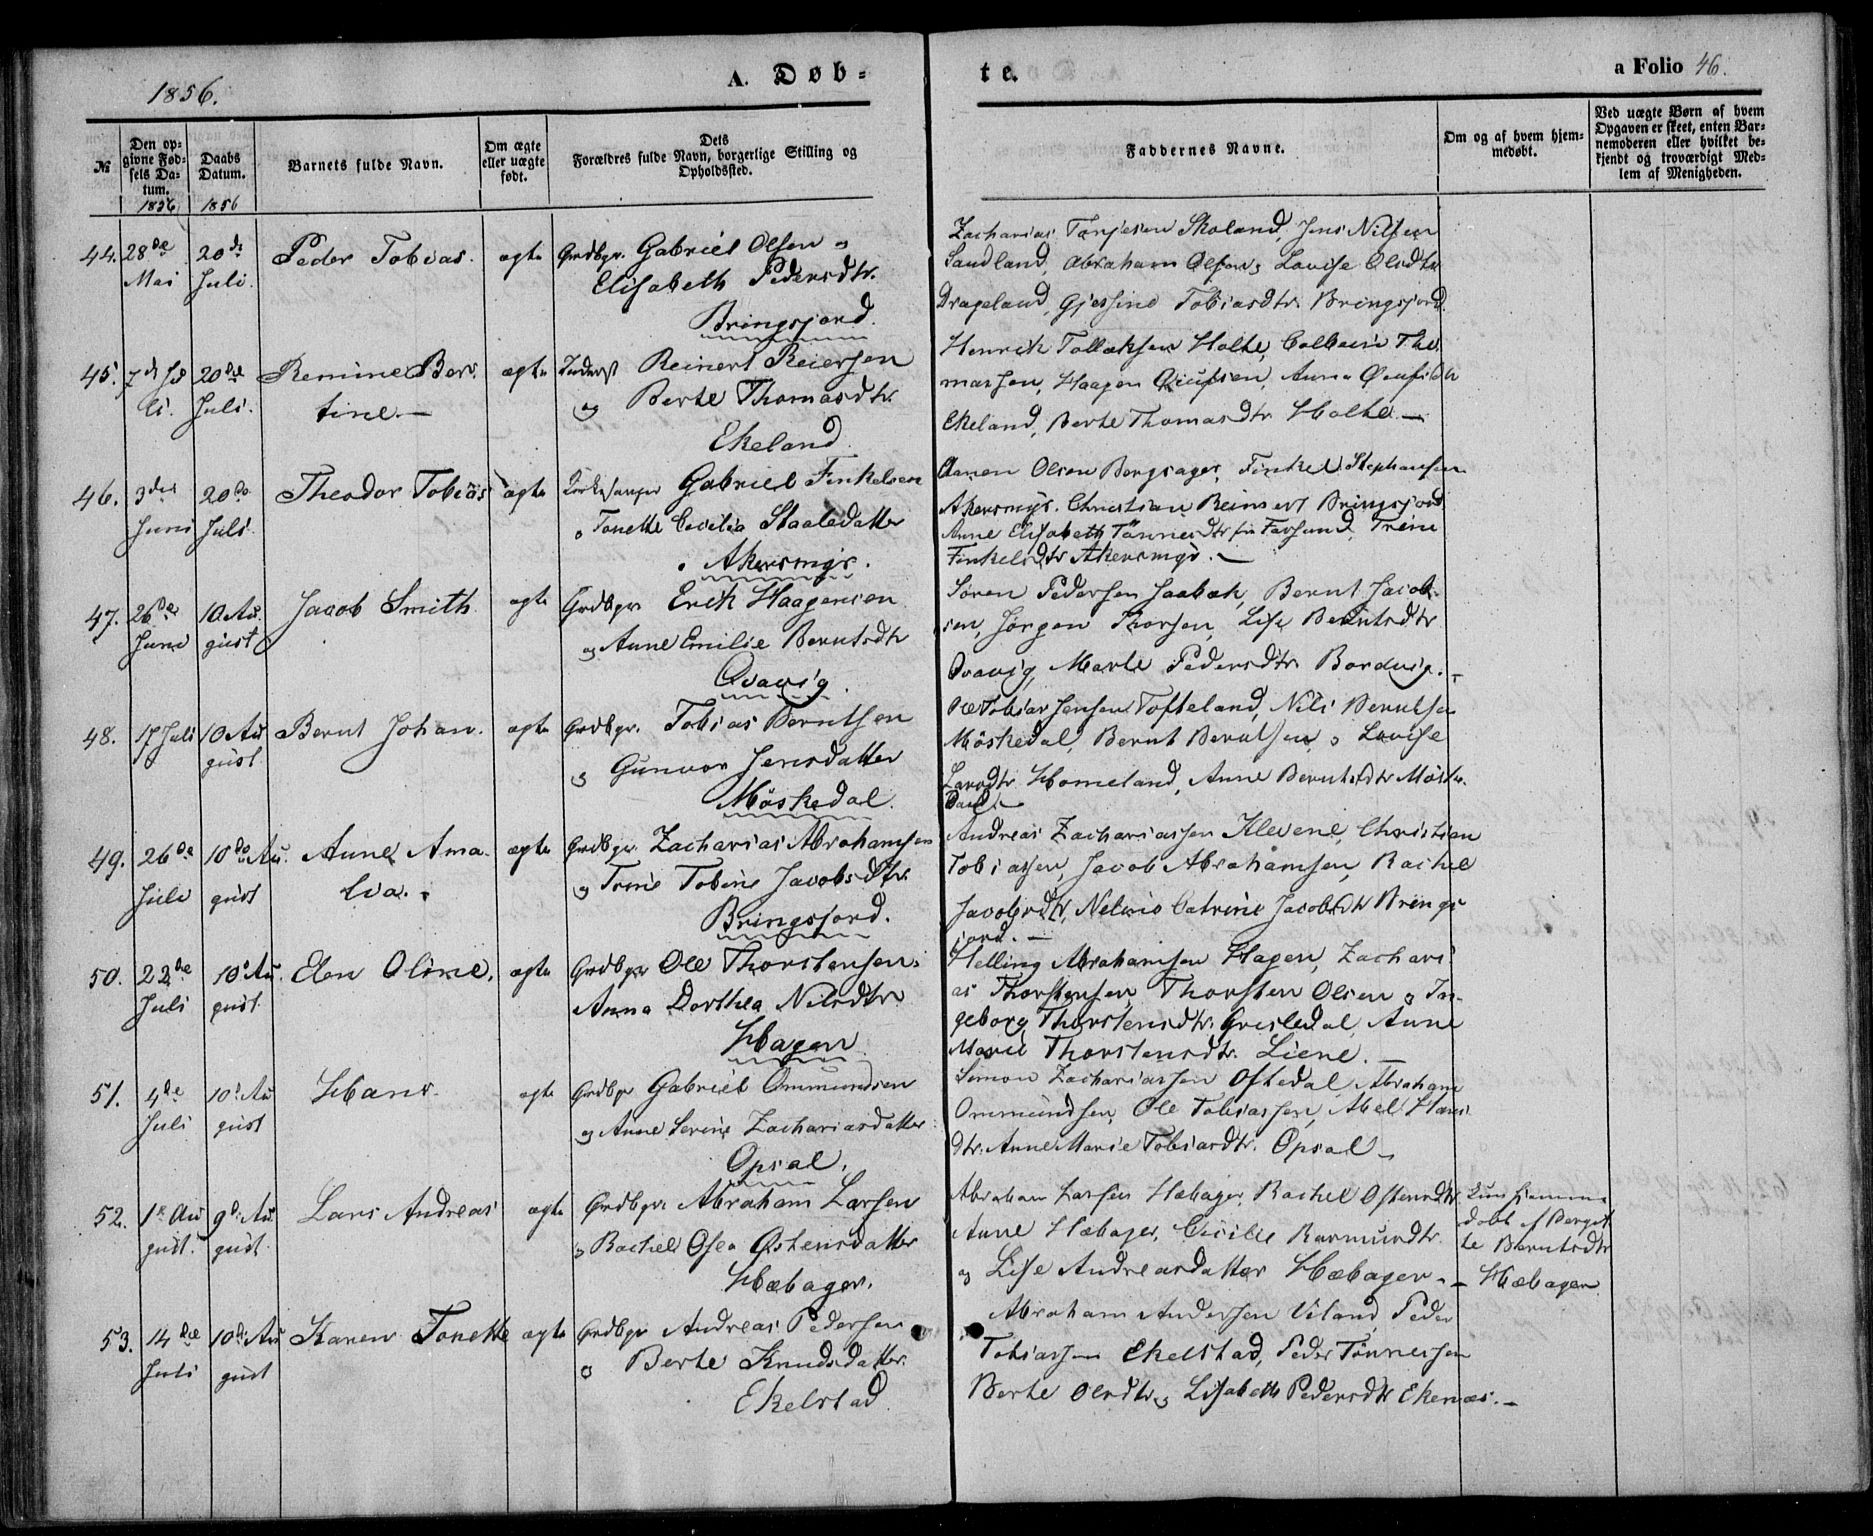 1856.
A. Døb-
te.
a Folio 46.
№
Den op-
givne Fød-
sels Da-
tum.
1856
Daabs
Datum.
1856
Barnets fulde Navn.
Om ægte
eller uægte
født.
Dets
Forældres fulde Navn, borgerlige Stilling og
Opholdssted.
Faddernes Navne.
Om og af hvem hjem-
medøbt.
Ved uægte Børn af hvem
Opgaven er skeet, enten Bar-
nemoderen eller hvilket be-
kjendt og troværdigt Med-
lem af Menigheden.
44. 28de
Mai
20de
Juli.
Peder Tobias.
ægte
Grdbgr. Gabriel Olsen og
Elisabeth Pedersdtr.
Bringsjord.
Zacharias Tønjesen Skoland, Jens Nilsen
Sandland, Abraham Olsen og Lovise Olsdtr
Drageland, Gjesine Tobiasdtr. Bringsjord.
45. 7de Ju
li.
20de
Juli.
Remine Ber
tine.—
ægte
Inderst Reinert Reiersen
og Berte Thomasdtr
Ekeland
Henrik Tollaksen Holte, Tho
massen, Haagen
Ekeland, Berte Thomasdtr Holte.—
46. 3die
Juni
20de
Juli.
Theodor Tobias
ægte
Kirkesanger Gabriel Finkelsen
og Tonette Cecilia Staalesdatter
Akersmyr.
Aanen Olsen Borgsager, Finkel Stephansen
Akersmyr. Christian Reinert Bringsjord
Anne Elisabeth Tønnesdtr fra Farsund, Trine
Finkelsdtr Akersmyr.—
47. 26de
Juni
10 Au
gust
Jacob Smith
ægte
Grdbgr Erik Haagensen
og Anne Emilie Berntsdtr
Qvavig.
Søren Pedersen Jaabæk, Bernt Jacob-
sen, Jørgen Thorsen, Lise Berntsdtr
Qvavig, Marte Pedersdtr. Bordvig.—
48. 17 Juli
10 Au
gust
Bernt Johan.
ægte
Grdbgr. Tobias Berntsen
og Gunvor Jensdatter
Møskedal.
Ole Tobias Jensen Tofteland, Nils Berntsen
Møskedal, Bernt Berntsen og Lovise
Larsdtr Homeland, Anne Berntsdtr Møske
dal.—
49. 26de
Juli
10de Au.
gust
Anne Ama-
lva.
ægte
Grdbgr. Zacharias Abrahamsen
og Trine Tobine Jacobsdtr.
Bringsjord.
Andreas Zachariassen Klevene, Christian
Tobiassen, Jacob Abrahamsen, Rachel
Jacobsdtr, Catrine Jacobsdtr Brings
jord.—
50. 22de
Juli
10de Au.
gust.
Elen Oline.
ægte
Grdbgr Ole Thorstensen og
Anna Dorthea Nilsdtr.
Hagen
Helling Abrahamsen Hagen, Zachari
as Thorstensen, Thorsten Olsen og In-
geborg Thorstensdtr. Grisledal, Anne
Marie Thorstensdtr. Liene.—
51. 4de
Juli
10de Au
gust
Hans
ægte
Grdbgr Gabriel Ommundsen
og Anne Serine Zachariasdatter
Opsal.
Simon Zachariassen Oftedal, Abraham
Ommundsen, Ole Tobiassen, Abel Hans
dtr. Anne Marie Tobiasdtr. Opsal—
52. 1ste Au
gust.
9de Au.
gust.
Lars Andreas
ægte
Grdbgr. Abraham Larsen
og Rachel Osea Østensdatter
Hæbager.
Abraham Larsen Hæbager, Rachel Østensdtr
Anne Hæbager, Cicilie Rasmusdtr.
og Lise Andreasdatter Hæbager.—
Kun hjemme
døbt af Bergit
te Berntsdtr
Hæbager
53. 14de
Juli
10de Au
gust
Karen Tonette
ægte
Grdbgr Andreas Pedersen
og Berte Knudsdatter.
Ekelstad.
Abraham Andersen Viland, Peder
Tobiassen Ekelstad, Peder Tønnessen
Berte Olsdtr og Lisabeth Pedersdtr Ekenæs.—